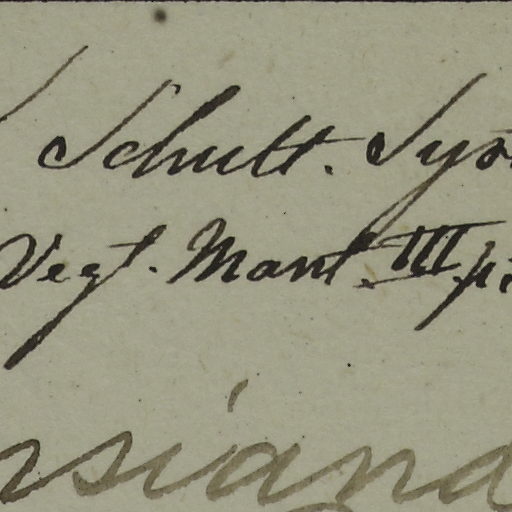 Schult. Sys
Vegt. Mant. III. p.
rsiand